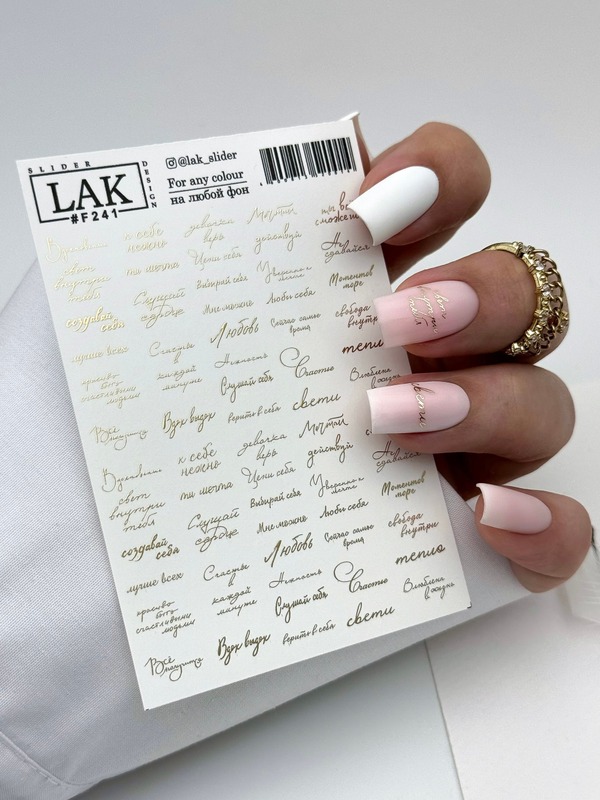 SLIDER
LAK
DESIGN
#F241
@lak_slider
For any colour
на любой фон
Вдохновение
к себе
нежно
девочка
верь
Мечтай
действуй
ты все
сможешь
свет
внутри
тебя
ты мечта
Цени себя
Не
сдавайся
создавай
себя
Слушай
сердце
Выбирай себя
Уверенно к
мечте
Моментов
море
лучше всех
Счастье
Мне можно
Любовь
Люби себя
Сейчас самое
время
свобода
внутри
красиво
быть
счастливыми
людьми
каждой
минуте
Нежность
Слушай себя
Счастье
тепло
Влюблена
Всё
получится
Вдох выдох
верить в себя
свети
Вдохновение
к себе
нежно
девочка
верь
Мечтай
действуй
Не
сдавайся
свет
внутри
тебя
ты мечта
Цени себя
создавай
себя
Слушай
сердце
Выбирай себя
Уверенно к
мечте
Моментов
море
лучше всех
Счастье
в
Мне можно
Любовь
Люби себя
Сейчас самое
время
свобода
внутри
красиво
быть
счастливыми
людьми
каждой
минуте
Нежность
Слушай себя
Счастье
тепло
Влюблена
в жизнь
Всё
получится
Вдох выдох
верить в себя
свети
свет
внутри
тебя
свети